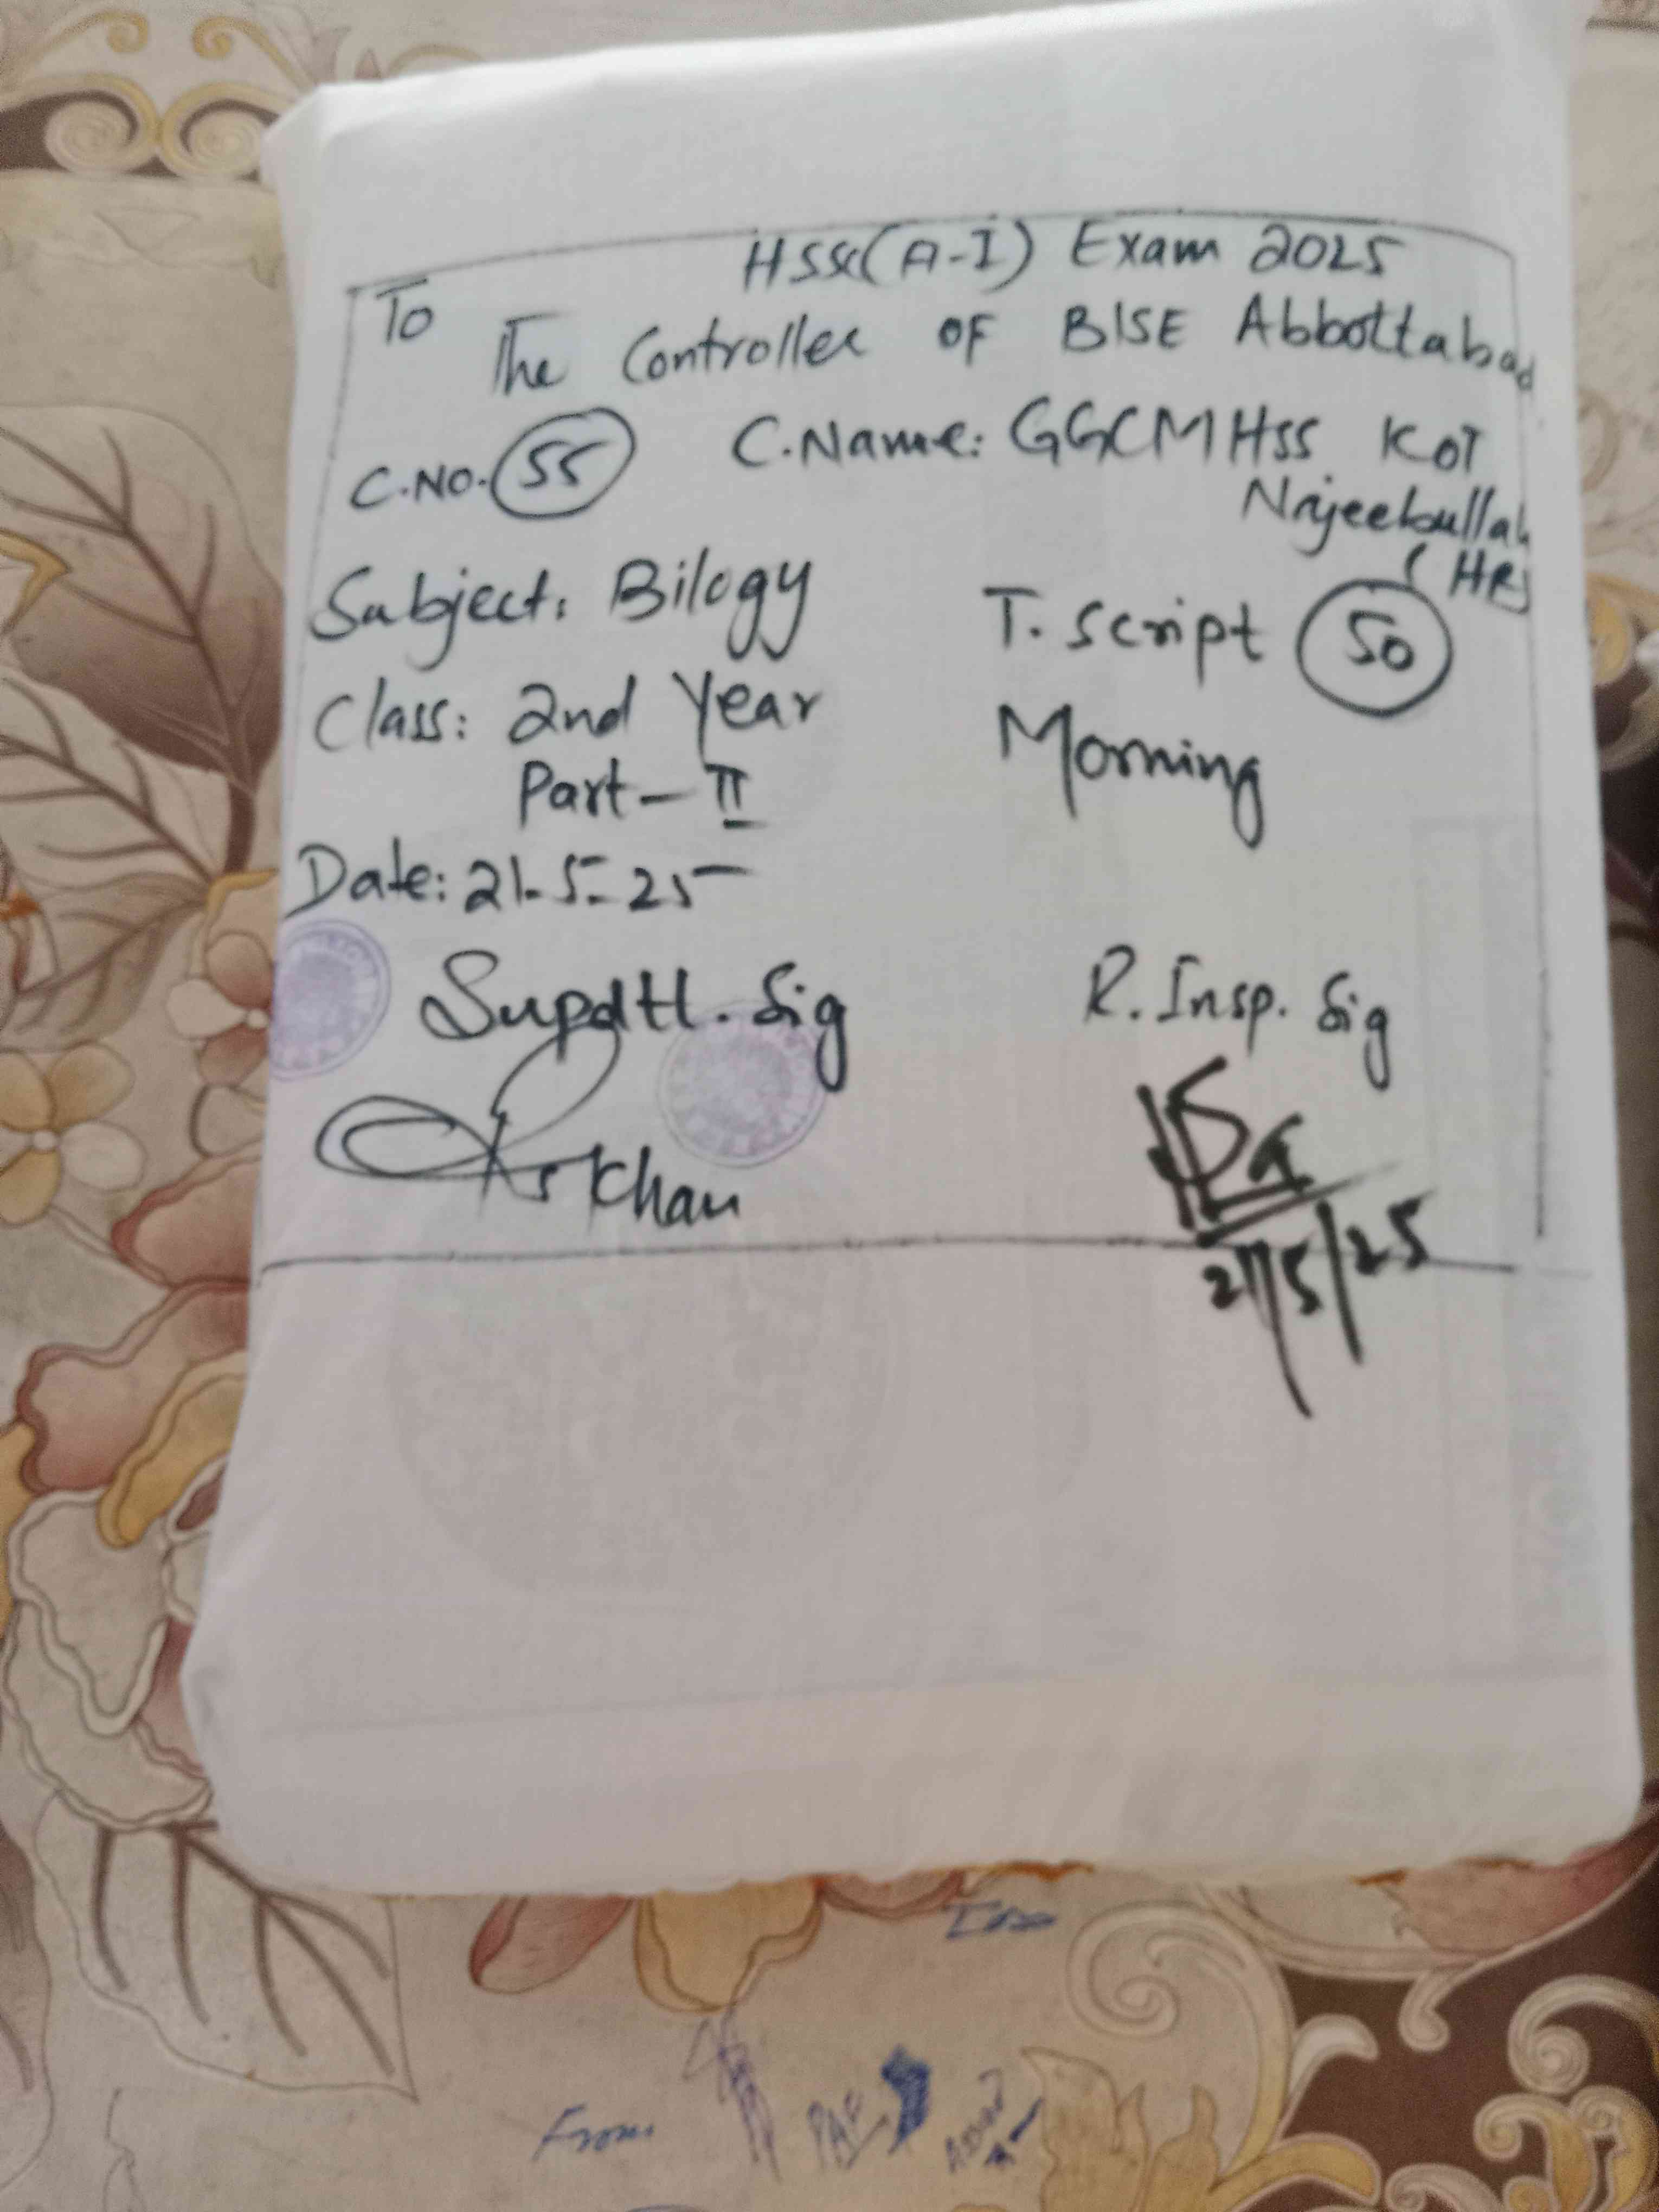 HSSC(A-I) Exam 2025
To
The Controller OF BISE Abbottabad
C.NO. 55 C.Name: GGCMHSS KOT
Najeebullah
(HR)
Subject: Bilogy T. Script 50
Class: 2nd Year Morning
Part-II
Date: 21-5-25
Supdtt. Sig R. Insp. Sig
Khan
21/5/25
From PAF